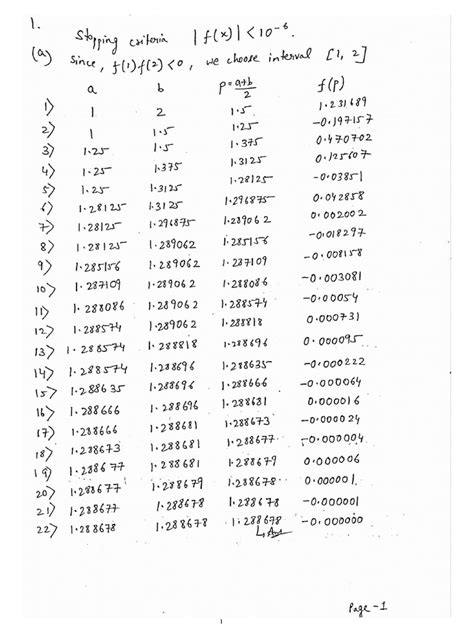 1.
Stopping criteria |f(x)| < 10^-6.
(a) Since, f(1)f(2)<0, we choose interval [1, 2]
a b p=a+b/2 f(p)
1) 1 2 1.5 1.231689
2) 1 1.5 1.25 -0.197157
3) 1.25 1.5 1.375 0.470702
4) 1.25 1.375 1.3125 0.125607
5) 1.25 1.3125 1.28125 -0.03851
6) 1.28125 1.3125 1.296875 0.042858
7) 1.28125 1.296875 1.289062 0.002002
8) 1.28125 1.289062 1.285156 -0.018297
9) 1.285156 1.289062 1.287109 -0.008158
10) 1.287109 1.289062 1.288086 -0.003081
11) 1.288086 1.289062 1.288574 -0.00054
12) 1.288574 1.289062 1.288818 0.000731
13) 1.288574 1.288818 1.288696 0.000095
14) 1.288574 1.288696 1.288635 -0.000222
15) 1.288635 1.288696 1.288666 -0.000064
16) 1.288666 1.288696 1.288681 0.000016
17) 1.288666 1.288681 1.288673 -0.000024
18) 1.288673 1.288681 1.288677 -0.000004
19) 1.288677 1.288681 1.288679 0.000006
20) 1.288677 1.288679 1.288678 0.000001
21) 1.288677 1.288678 1.288678 -0.000001
22) 1.288678 1.288678 1.288678 -0.000000
Ans
Page -1